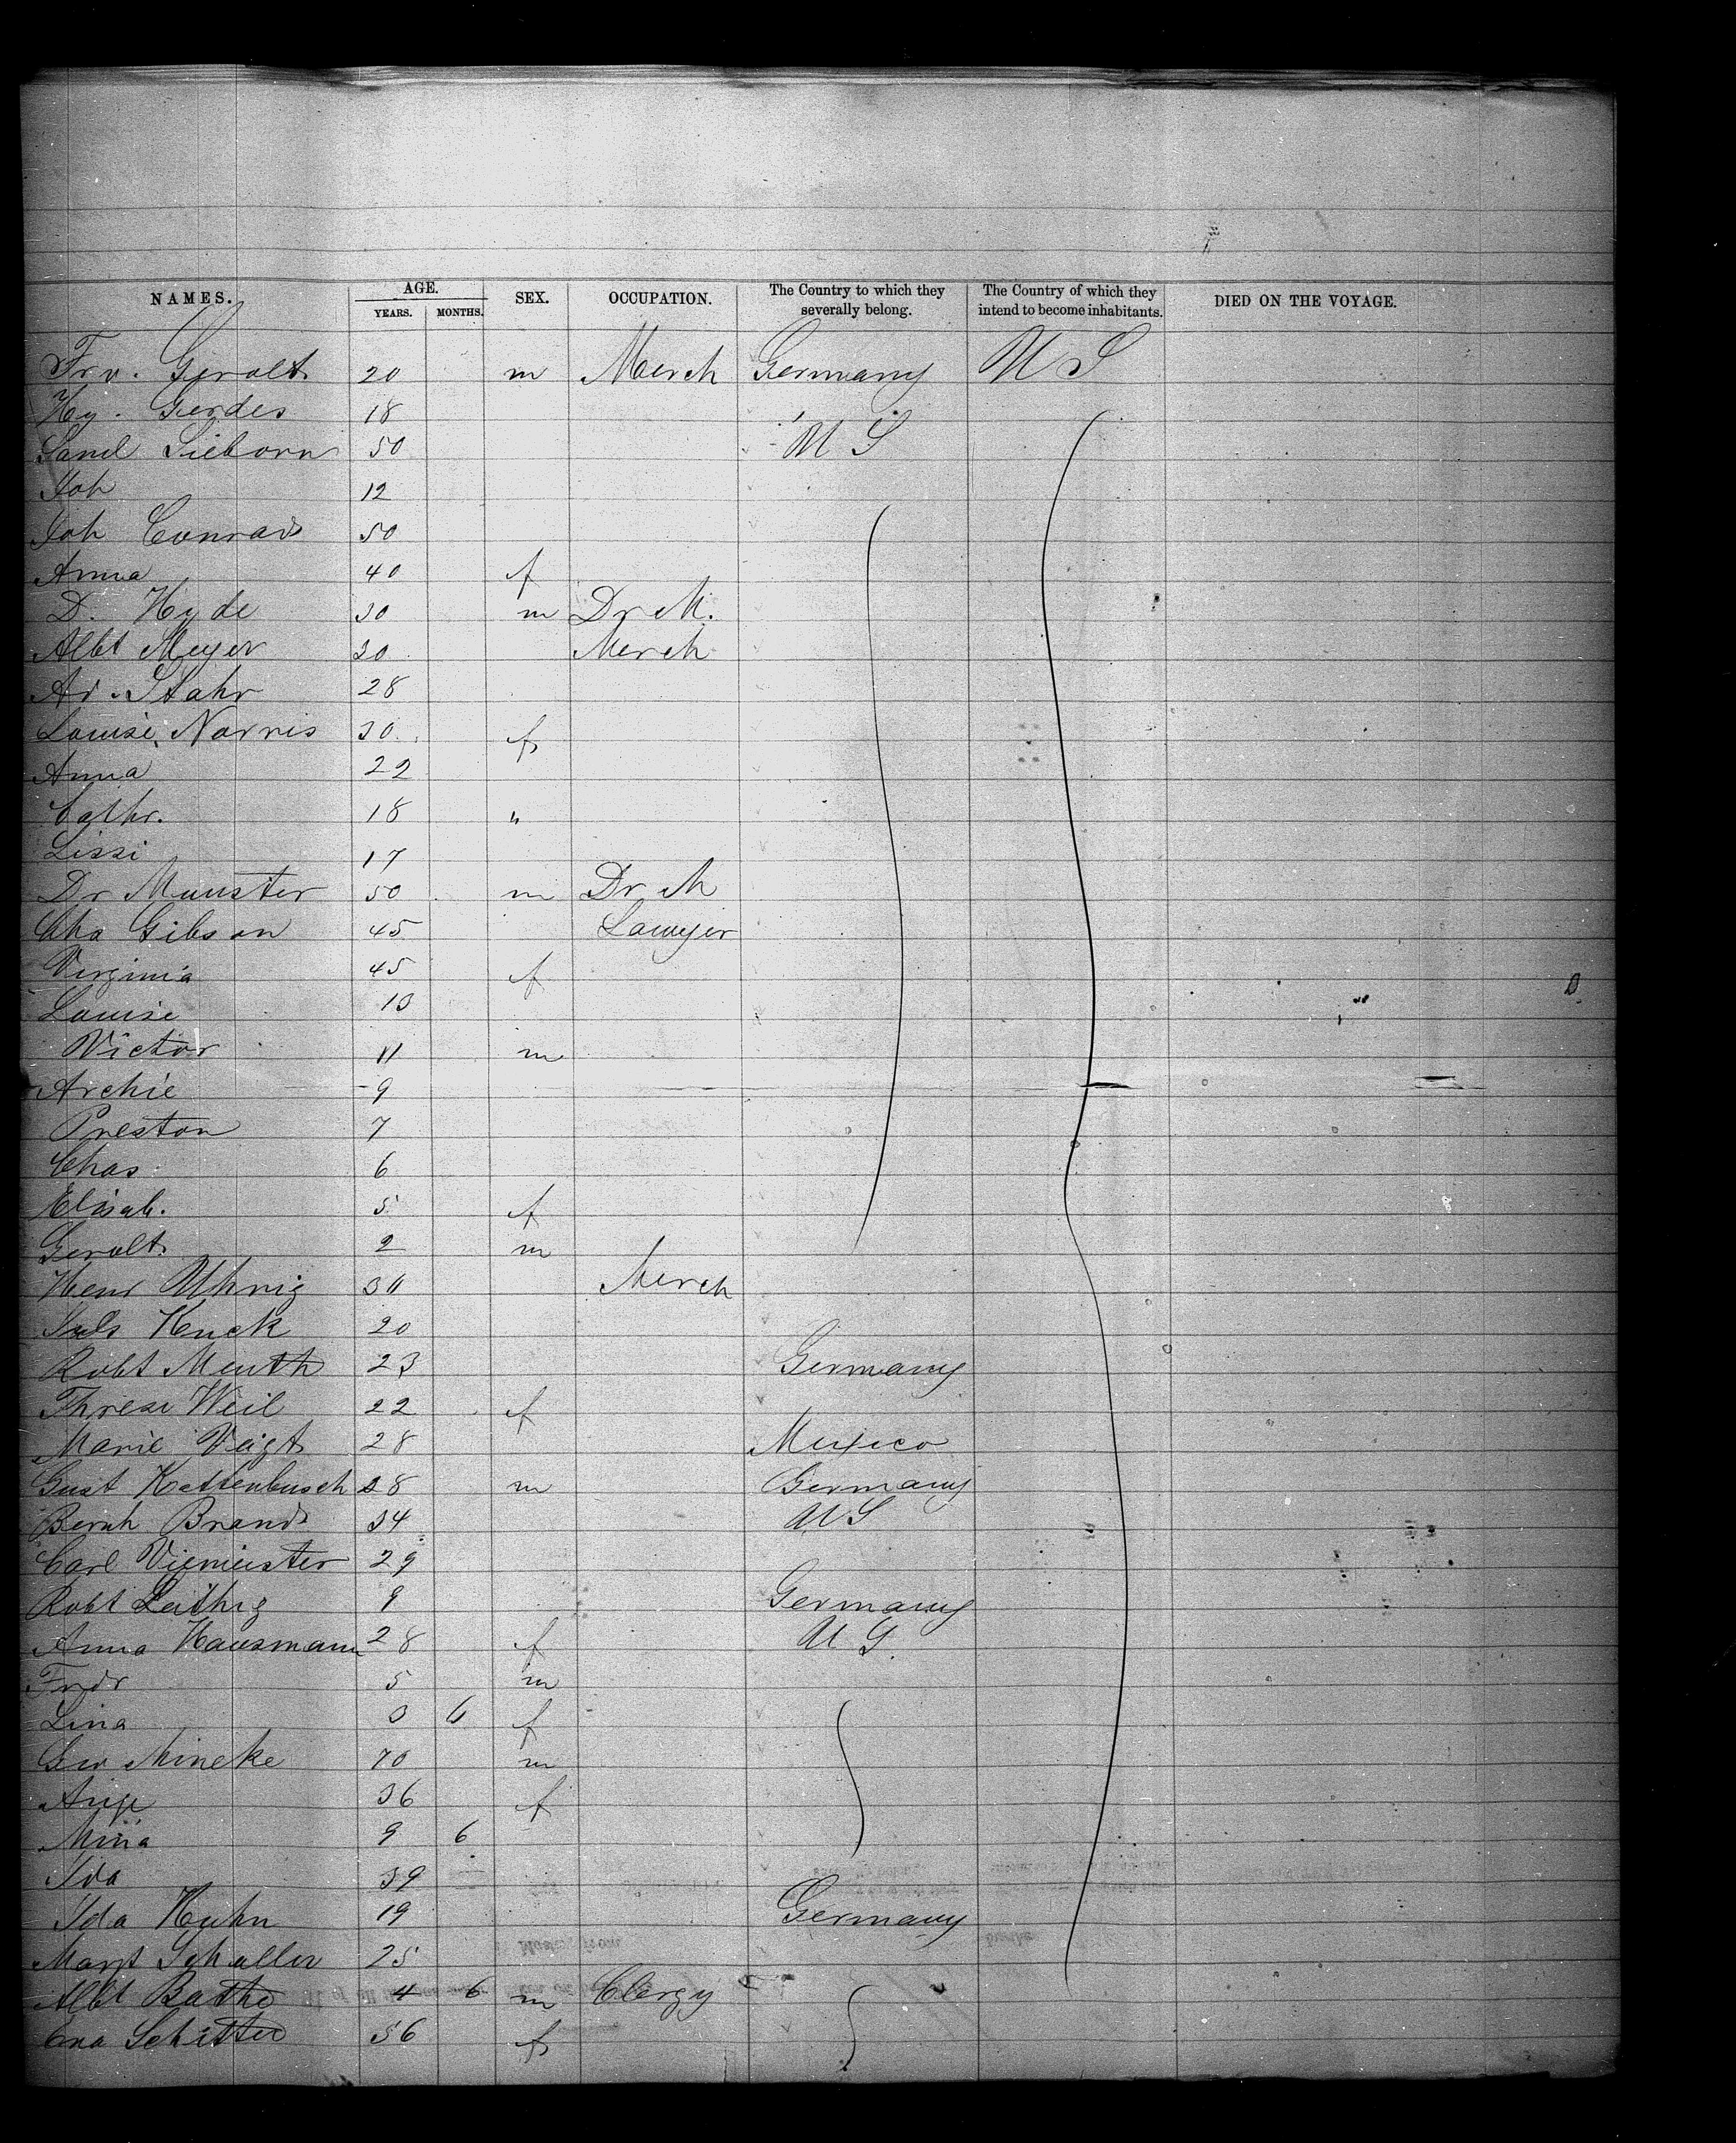 NAMES. AGE. YEARS. MONTHS. SEX. OCCUPATION. The Country to which they severally belong. The Country of which they intend to become inhabitants. DIED ON THE VOYAGE.
Frv. Gerolt 20 m Merch Germany U S
Hy. Gerdes 18
Saml Sieborn 50 U S
Joh 12
Joh Conrad 50
Anna 40 f
D. Hyde 30 m Dr M.
Albt Meyer 30 Merch
Ad. Stahr 28
Louise Norris 30 f
Anna 22
Cathr. 18 "
Lissi 17
Dr Munster 50 m Dr M
Chs Gibson 45 Lawyer
Virginia 45 f
Louise 13
Victor 11 m
Archie 9
Preston 7
Chas 6
Elisab. 5 f
Gerolt 2 m
Henr Uhrig 30 Merch
Juls Huck 20
Robt Muth 23 Germany
Threse Weil 22 f
Marie Veigt 28 Mexico
Gust Kattenbusch 28 m Germany
Bernh Brand 34 U S
Carl Viemeister 29
Robt Leithig 9 Germany
Anna Hausmann 28 f U S
Fredr 5 m
Lina 3 6 f
Geo Mineke 70 m
36 f
Mina 9 6
Ida 39
Ida Huhn 19 Germany
Margt Schaller 25
Albt Bathe 4 6 m Clergy
Schitter 56 f